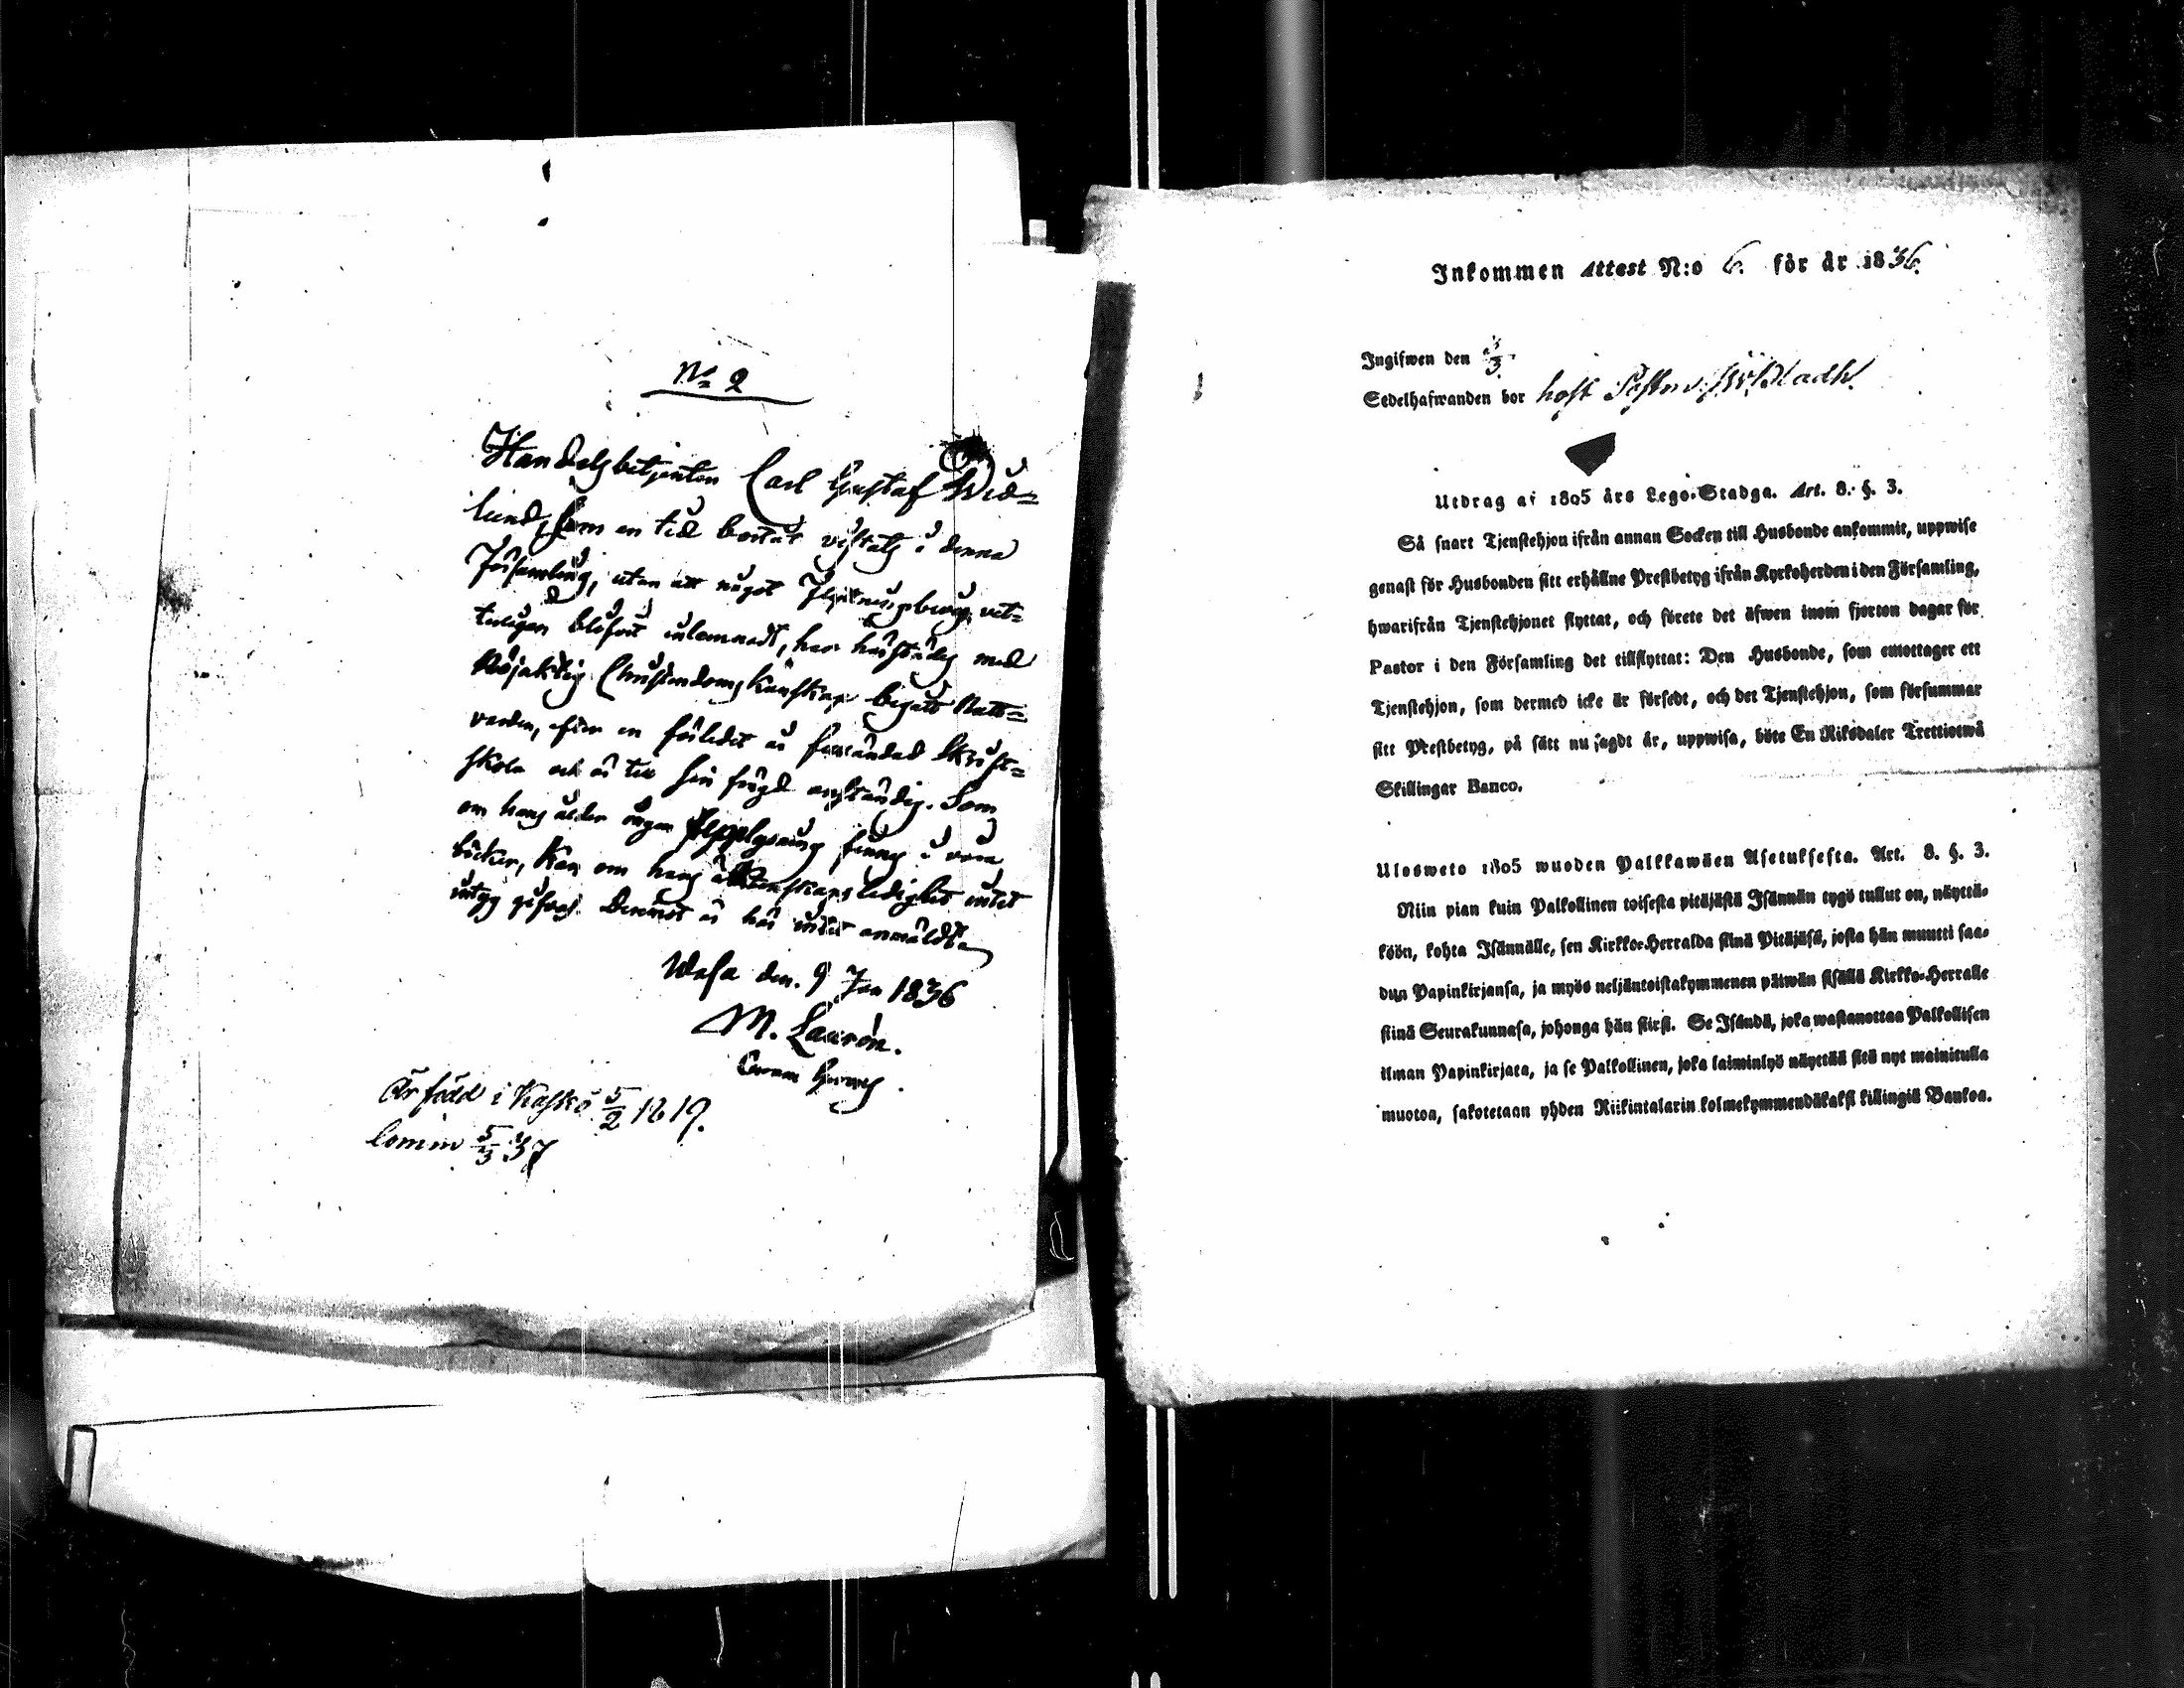 No 2
Handelsbetjenten Carl Gustaf Wid=
lund, som en tid bortåt vistats i denna
Församling, utan att något flyttningsbetyg vet=
terligen blifvit inlemnadt, har härstädes med
Nöjaktig Christendoms kunskap begått Natt=
varden, efter en förledet år Skrift=
skola och är till sin frägd anständig. Som
om hans ålder ingen upplysning finnes i våra
böcker, kan om hans äktenskaps ledighet intet
intyg gifvas. Dennes är här intet anmäldt
Wasa den. 9 Jan 1836
M. Laurén.
Är född i Kaskö 5/2 1819.
5/3 37
Inkommen Attest N:o 6. för år 1836.
Ingifwen den 5/3
Sedelhafwanden bor hoſt
Utdrag af 1805 års Lego-Stadga. Art. 8. §. 3.
Så ſnart Tjenſtehjon ifrån annan Socken till Husbonde ankommit, uppwiſe
genaſt för Husbonden ſitt erhållne Preſtbetyg ifrån Kyrkoherden i den Förſamling,
hwarifrån Tjenſtehjonet flyttat, och förete det äfwen inom fjorton dagar för
Pastor i den Förſamling det tillflyttat: Den Husbonde, ſom emottager ett
Tjenſtehjon, ſom dermed icke är förſedt, och det Tjenſtehjon, ſom förſummar
ſitt Preſtbetyg, på ſätt nu ſagdt är, uppwiſa, böte En Riksdaler Trettiotwå
Skillingar Banco.
Ulosweto 1805 wuoden Palkkawäen Aſetukſeſta. Art. 8. §. 3.
Niin pian kuin Palkollinen toiſeſta pitäjäſtä Iſännän tygö tullut on, näyttä-
köön, kohta Iſännälle, ſen Kirkko-Herralda ſiinä Pitäjäſä, joſta hän muutti ſaa-
dun Papinkirjanſa, ja myös neljäntoiſtakymmenen päiwän ſiſällä Kirkko-Herralle
ſiinä Seurakunnaſa, johonga hän ſiirſi. Se Iſändä, joka waſtanottaa Palkolliſen
ilman Papinkirjata, ja ſe Palkollinen, joka laiminlyö näyttää ſitä nyt mainitulla
muotoa, ſakotetaan yhden Riikintalarin kolmekymmendäkakſi killingiä Bankoa.